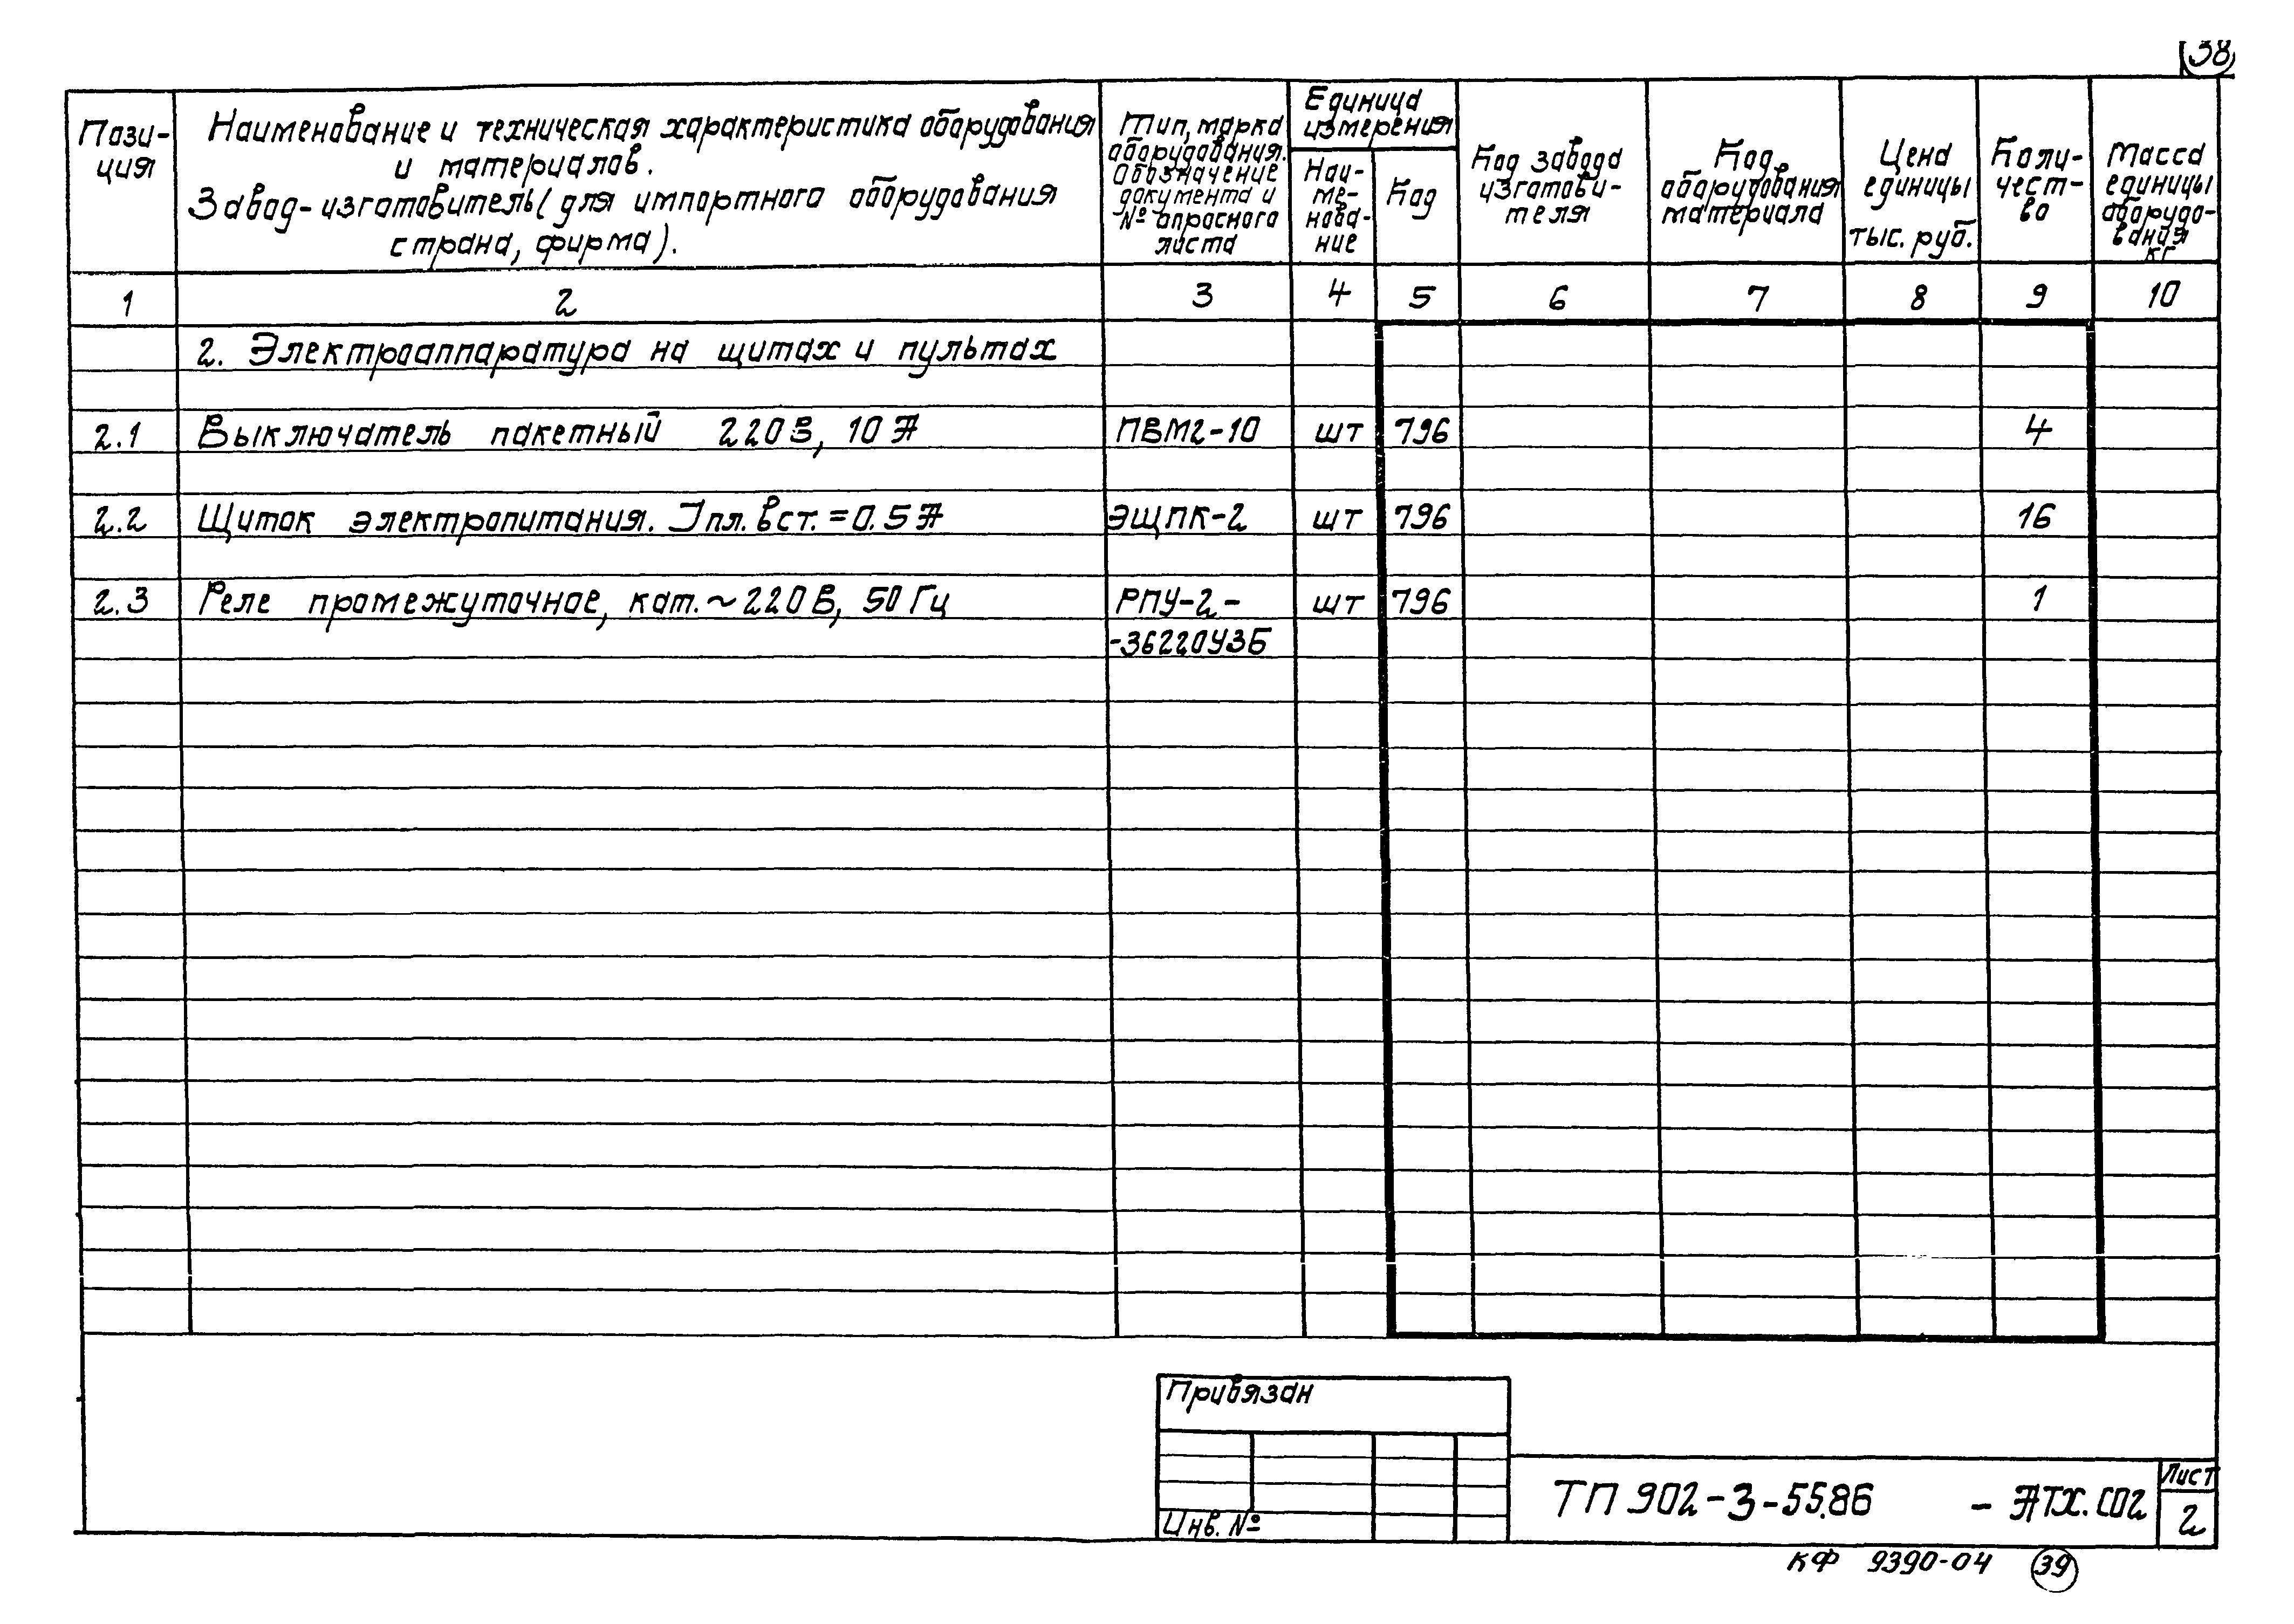 38
Пози-
ция
Наименование и техническая характеристика оборудования
и материалов.
Завод-изготовитель (для импортного оборудования
страна, фирма).
Тип, марка
оборудования.
Обозначение
документа и
№ опросного
листа
Единица
измерения
Наи-
ме-
нова-
ние
Код
Код завода
изготови-
теля
Код
оборудования
материала
Цена
единицы
тыс. руб.
Коли-
чест-
во
Масса
единицы
оборудо-
вания
кг
1 2 3 4 5 6 7 8 9 10
2. Электроаппаратура на щитах и пультах
2.1 Выключатель пакетный 220В, 10А ПВМ2-10 шт 796 4
2.2 Щиток электропитания. Iпл.вст.=0.5А ЭЩПК-2 шт 796 16
2.3 Реле промежуточное, кат.~220В, 50Гц РПУ-2- шт 796 1
-36220У3Б
Привязан
Инв. №
ТП 902-3-55.86 - АТХ.СО2
Лист
2
КФ 9390-04 39